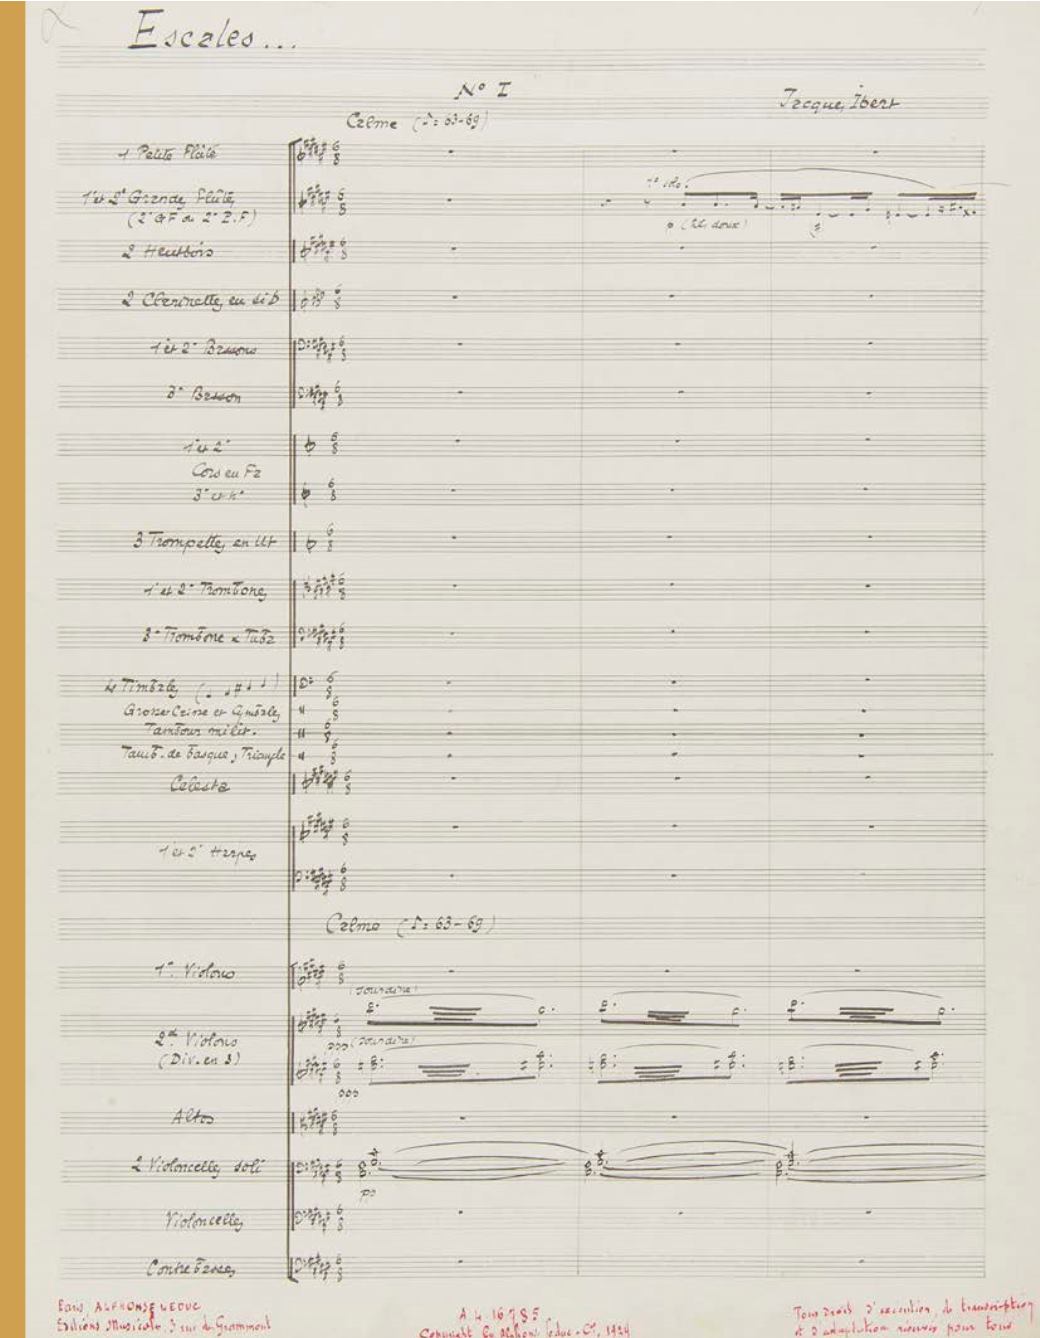 Escales...
N° I
Jacques Ibert
Calme (♪= 63-69)
1 Petite Flûte
1° solo
1er et 2e Grandes Flûtes
(2e G F ou 2e P.F)
p (très doux)
2 Hautbois
2 Clarinettes en si b
1er et 2e Bassons
3e Basson
1er et 2e
Cors en Fa
3e et 4e
3 Trompettes en Ut
1er et 2e Trombones
3e Trombone & Tuba
4 Timbales
Grosse Caisse et Cymbales
Tambour milit.
Tamb. de basque, Triangle
Celesta
1er et 2e Harpes
Calme (♪= 63-69)
1ers Violons
(sourdine)
2ds Violons
ppp (sourdine)
(Div. en 3)
ppp
Altos
2 Violoncelles soli
pp
Violoncelles
Contrebasses
Paris, ALPHONSE LEDUC
Editions Musicales, 3 rue de Grammont
A. L. 16.785
Copyright by Alphonse Leduc & Cie, 1924
Tous droits d'exécution, de transcription
et d'adaptation réservés pour tous